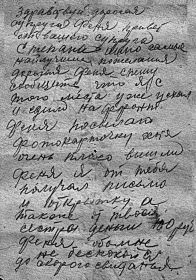 Здравствуй дорогая
супруга Феня привет
от вашего супруга
Степана шлю самые
наилучшие пожелания
дорогая Феня спешу
сообщить что я с
того места уже уехал
и едим на фронт
Феня посылаю
фотокарточку хотя
очень плохо вышли
Феня я от тебя
получил письмо
и открытку а
также от твоей
сестры деньги 100 руб
Феня обо мне
не беспокойся
до скорого свидания